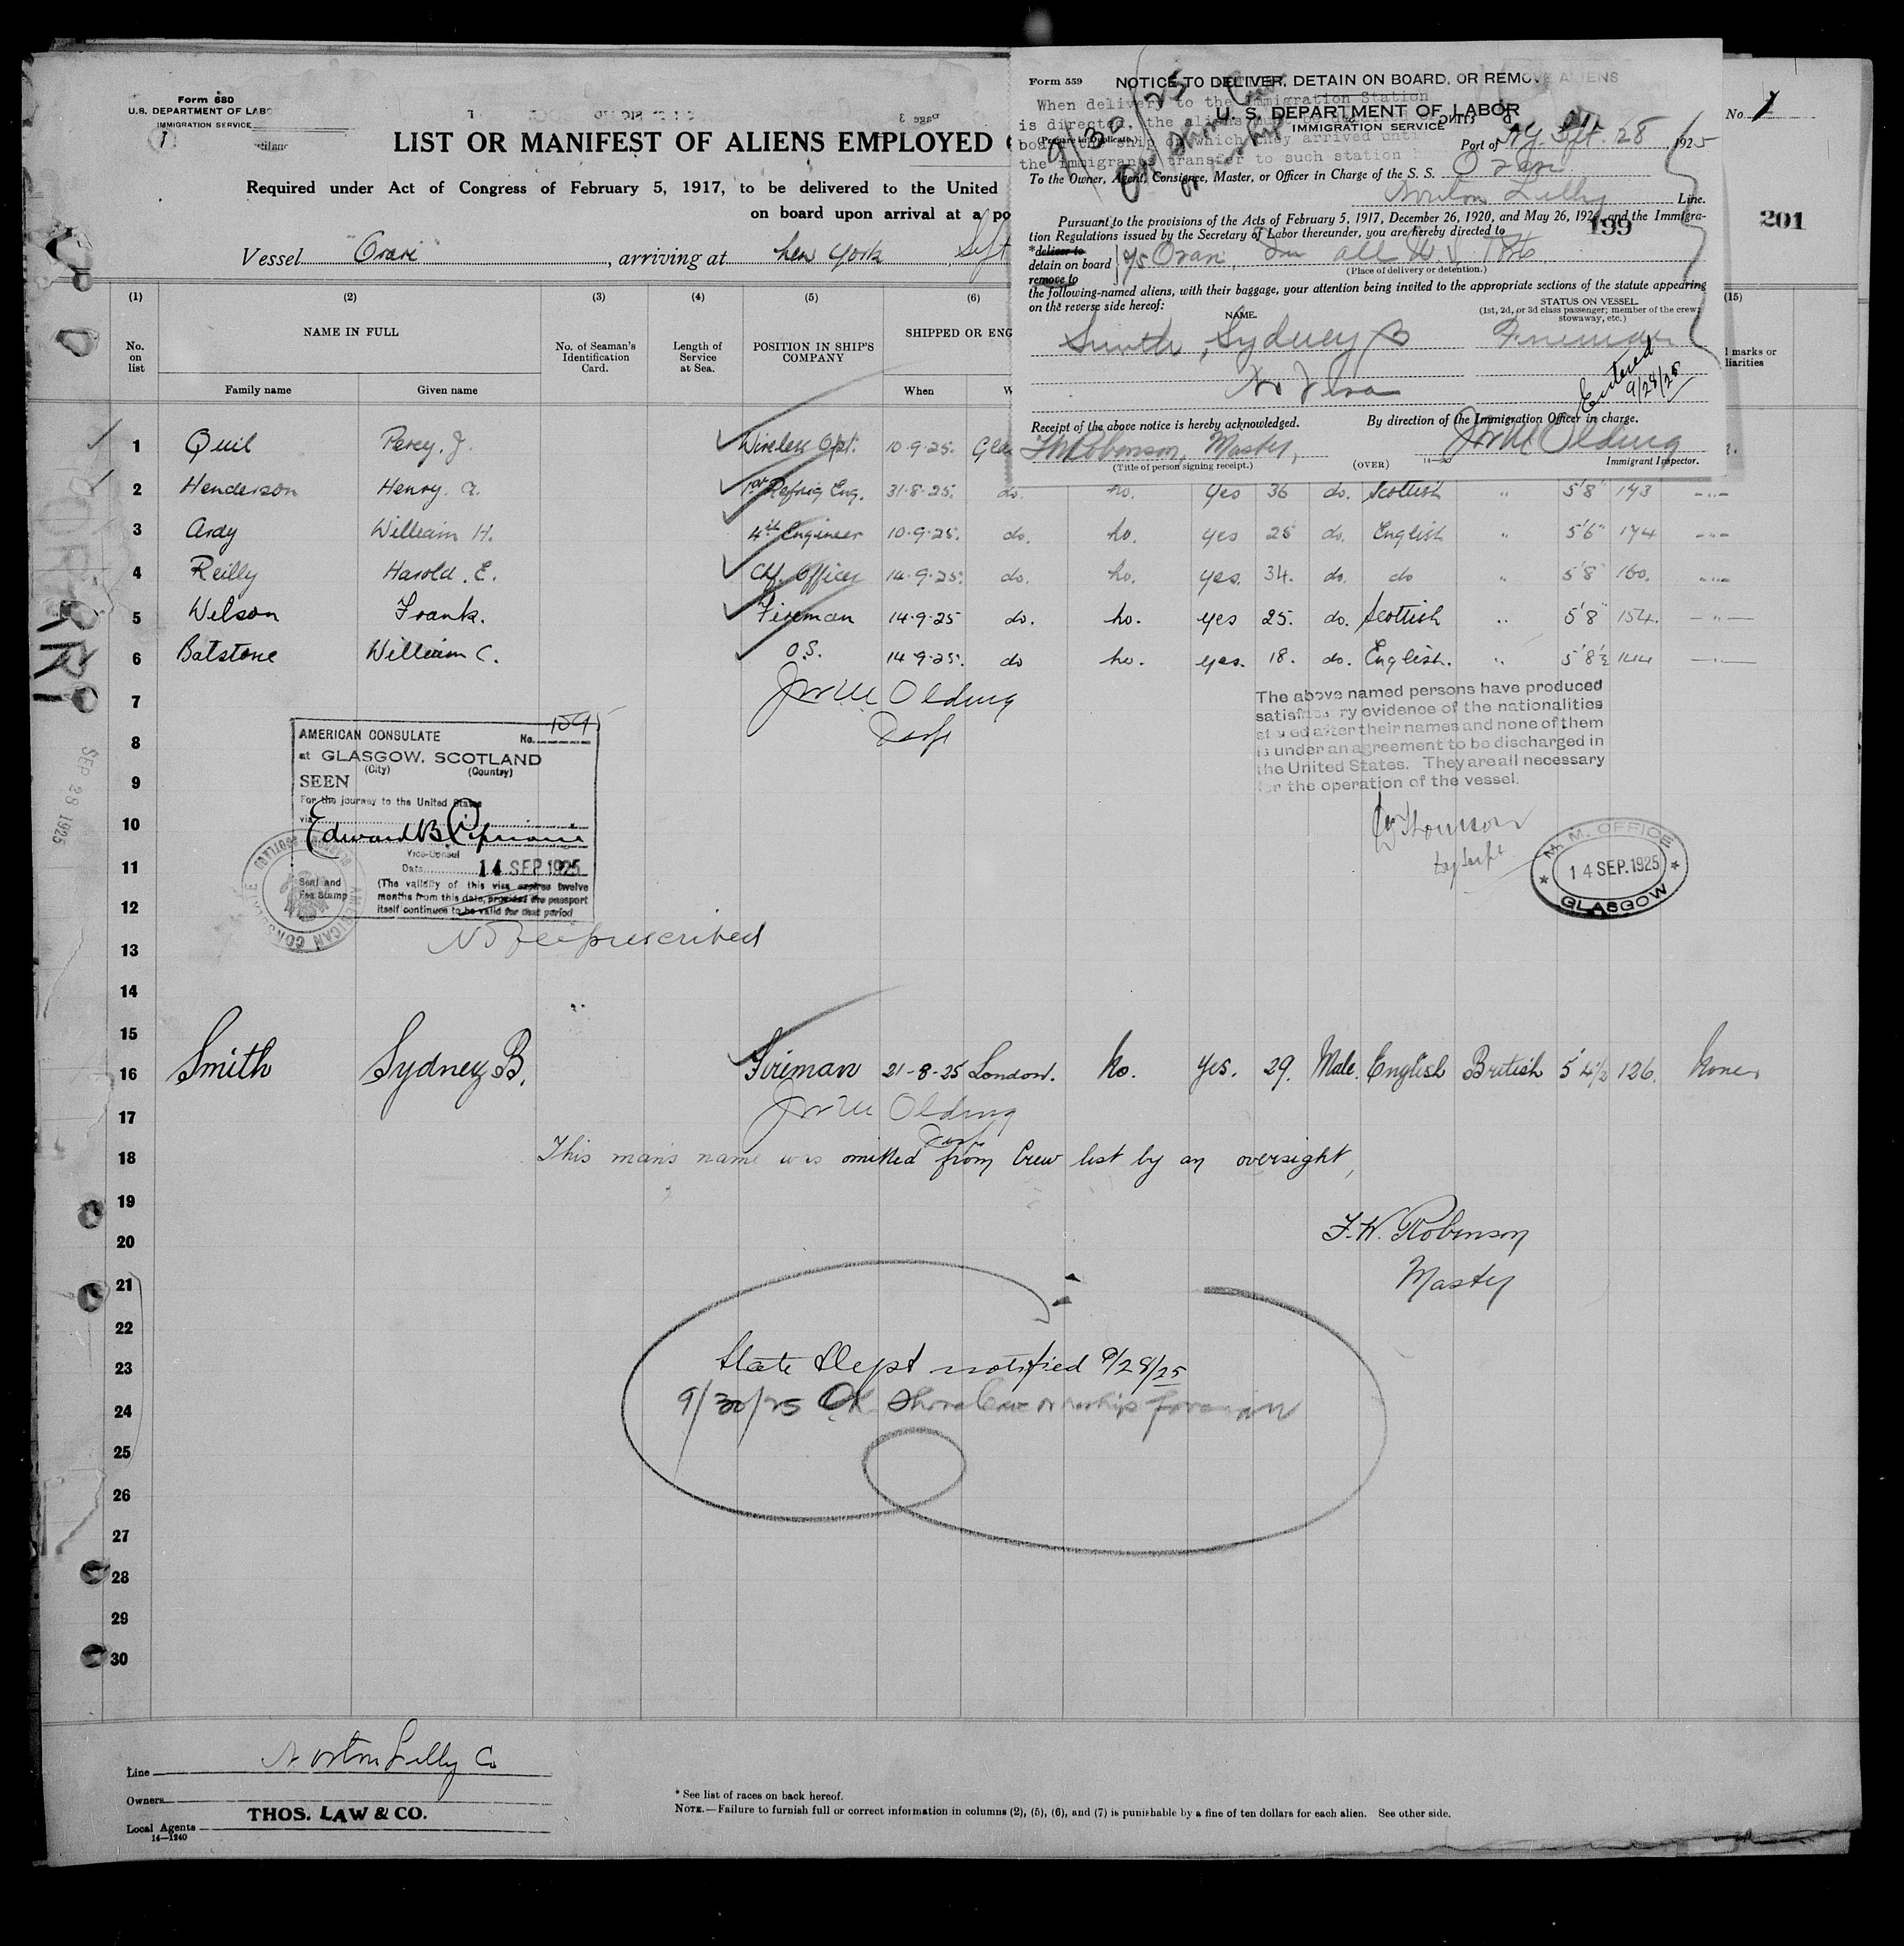 Form 680
U.S. DEPARTMENT OF LABO
IMMIGRATION SERVICE
1
LIST OR MANIFEST OF ALIENS EMPLOYED
Required under Act of Congress of February 5, 1917, to be delivered to the United
on board upon arrival at a po
Vessel "Orari", arriving at New York, Sept
No. 1
201
199
Form 559
NOTICE TO DELIVER, DETAIN ON BOARD, OR REMOVE ALIENS
When delivery to the Immigration Station
is directed, the aliens
the immigrants transfer to such station
U. S. DEPARTMENT OF LABOR
IMMIGRATION SERVICE
9/30/25
Port of N.Y. Sept. 28, 1925
To the Owner, Agent, Consignee, Master, or Officer in Charge of the S. S. Orari
Norton Lilly Line.
Pursuant to the provisions of the Acts of February 5, 1917, December 26, 1920, and May 26, 1924, and the Immigra-
tion Regulations issued by the Secretary of Labor thereunder, you are hereby directed to
*deliver to
detain on board
remove to
Orari, all U.S. Pts.
(Place of delivery or detention.)
the following-named aliens, with their baggage, your attention being invited to the appropriate sections of the statute appearing
on the reverse side hereof:
NAME.
STATUS ON VESSEL.
(1st, 2d, or 3d class passenger; member of the crew;
stowaway, etc.)
Smith, Sydney B Fireman
No Visa
Entered
9/28/25
Receipt of the above notice is hereby acknowledged.
By direction of the Immigration Officer in charge.
F W Robinson, Master,
Olding
(Title of person signing receipt.)
(OVER)
Immigrant Inspector.
(1) (2) (3) (4) (5) (6) (15)
No. on list
NAME IN FULL
Family name
Given name
No. of Seaman's Identification Card.
Length of Service at Sea.
POSITION IN SHIP'S COMPANY
SHIPPED OR ENG
When
W
marks or
liarities
1 Quil Percy. J. Wireless Opt. 10-9-25. Glas
2 Henderson Henry. A. Refrig Eng. 31-8-25. do. No. Yes 36 do. Scottish " 5'8" 143 -"-
3 Ardy William H. 4th Engineer 10-9-25. do. No. Yes 25 do. English " 5'6" 174 -"-
4 Reilly Harold. E. Chf. Officer 14-9-25. do. No. Yes. 34. do. do " 5'8" 160. -"-
5 Wilson Frank. Fireman 14-9-25 do. No. Yes 25. do. Scottish " 5'8" 154. -"-
6 Batstone William C. O.S. 14-9-25. do No. Yes. 18. do. English. " 5'8½ 144 -"-
7 Olding
8
9
10
11
12
13
14
15
AMERICAN CONSULATE No. 1595
at GLASGOW, SCOTLAND
(City) (Country)
SEEN
For the journey to the United States
via
Edward B. Cipriani
Vice-Consul
Date 14 SEP 1925
Seal and
Fee Stamp
(The validity of this visa expires twelve
months from this date, provided the passport
itself continues to be valid for that period
AMERICAN CONSULATE
No fee prescribed
SEP 28 1925
The above named persons have produced
satisfactory evidence of the nationalities
stated after their names and none of them
is under an agreement to be discharged in
the United States. They are all necessary
for the operation of the vessel.
M. M. OFFICE
14 SEP. 1925
GLASGOW
16 Smith Sydney B. Fireman 21-8-25 London. No. Yes. 29. Male. English British 5'4½ 126. None.
17 Olding
18 This mans name was omitted from Crew list by an oversight,
19
F. W. Robinson
20
Master
21
22
23 State Dept notified 9/28/25
24 9/30/25 OK
25
26
27
28
29
30
Line Norton Lilly Co
Owners
THOS. LAW & CO.
Local Agents
14—1240
* See list of races on back hereof.
NOTE.—Failure to furnish full or correct information in columns (2), (5), (6), and (7) is punishable by a fine of ten dollars for each alien. See other side.